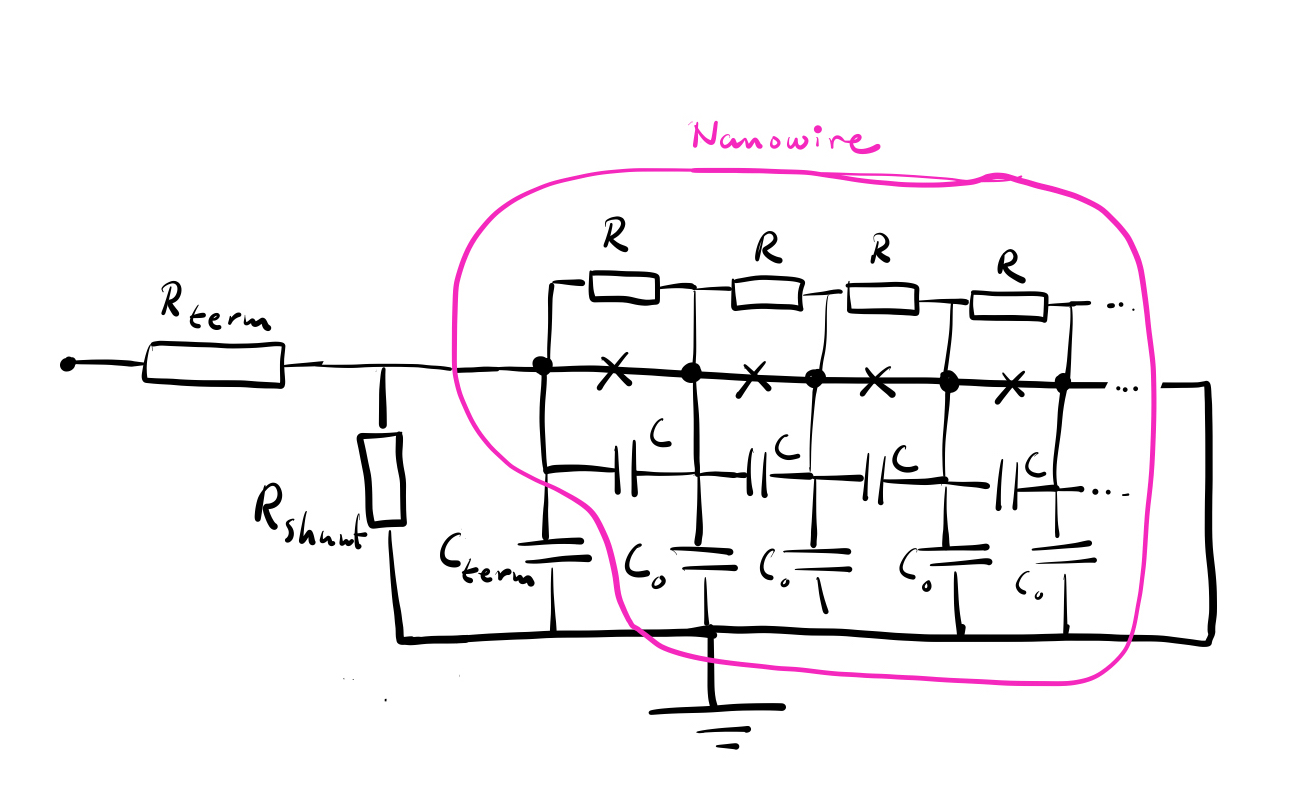 Nanowire
R R R R
R_term
...
...
C C C C
...
R_shunt
C_term C_o C_o C_o C_o